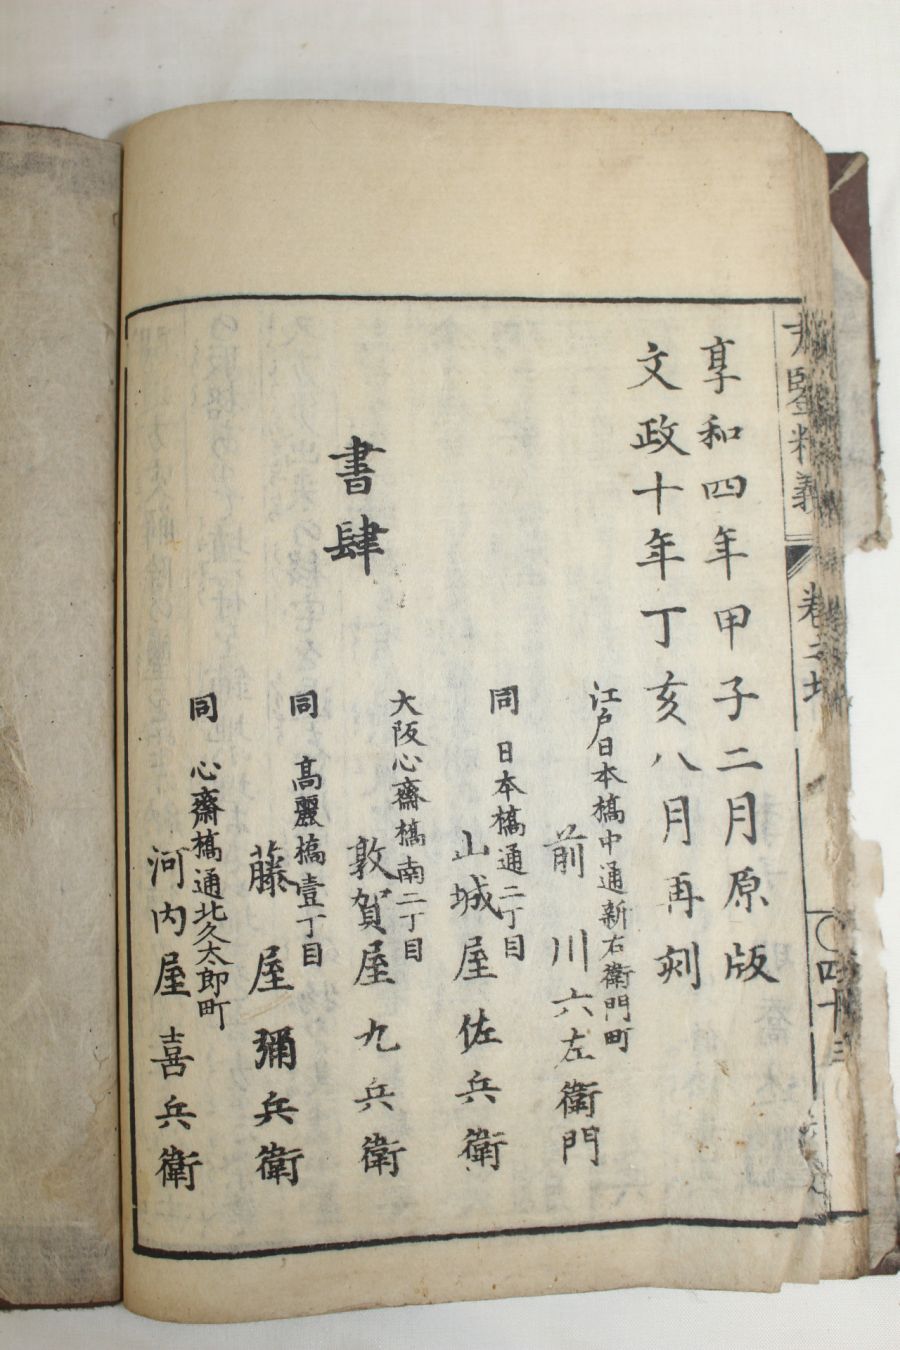 精義
卷之坤
四十三
享和四年甲子二月原版
文政十年丁亥八月再刻
書肆
江戸日本橋中通新右衛門町
前川六左衛門
同 日本橋通二丁目
山城屋佐兵衛
大阪心齋橋南二丁目
敦賀屋九兵衛
同 高麗橋壹丁目
藤屋彌兵衛
同 心齋橋通北久太郎町
河内屋喜兵衛